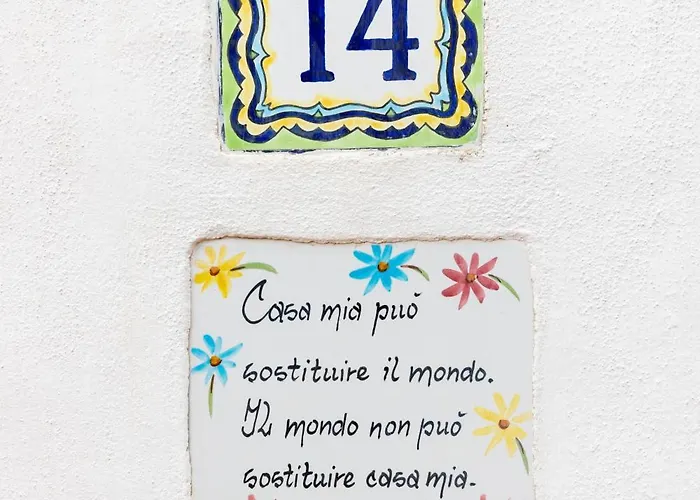 14
Casa mia può
sostituire il mondo.
Il mondo non può
sostituire casa mia.